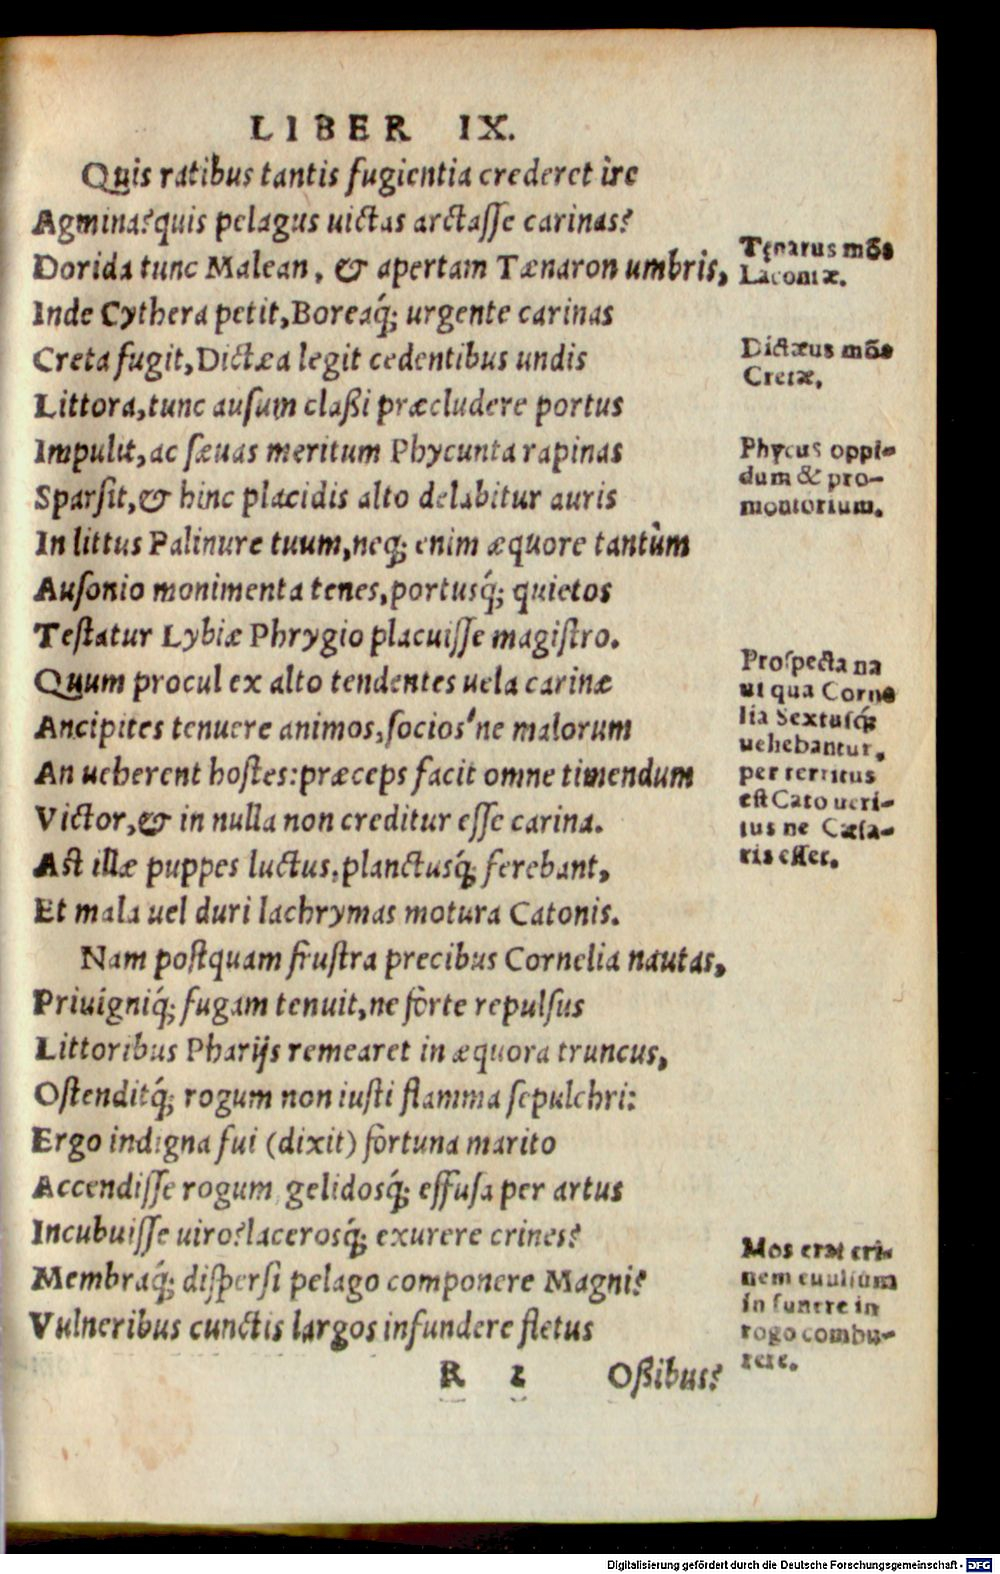 LIBER IX.
Quis ratibus tantis fugientia crederet ire
Agmina? quis pelagus uictas arctasse carinas?
Dorida tunc Malean, & apertam Tænaron umbris,
Inde Cythera petit, Boreaq́; urgente carinas
Creta fugit, Dictæa legit cedentibus undis
Littora, tunc ausum claßi præcludere portus
Impulit, ac sæuas meritum Phycunta rapinas
Sparsit, & hinc placidis alto delabitur auris
In littus Palinure tuum, neq; enim æquore tantùm
Ausonio monimenta tenes, portusq́; quietos
Testatur Lybiæ Phrygio placuisse magistro.
Quum procul ex alto tendentes uela carinæ
Ancipites tenuere animos, socios'ne malorum
An ueherent hostes: præceps facit omne timendum
Victor, & in nulla non creditur esse carina.
Ast illæ puppes luctus, planctusq́; ferebant,
Et mala uel duri lachrymas motura Catonis.
Nam postquam frustra precibus Cornelia nautas,
Priuigniq́; fugam tenuit, ne forte repulsus
Littoribus Pharijs remearet in æquora truncus,
Ostenditq́; rogum non iusti flamma sepulchri:
Ergo indigna fui (dixit) fortuna marito
Accendisse rogum, gelidosq́; effusa per artus
Incubuisse uiro? lacerosq́; exurere crines?
Membraq́; dispersi pelago componere Magni?
Vulneribus cunctis largos infundere fletus
R 2 Oßibus?
Tęnarus mõs
Laconiæ.
Dictæus mõs
Cretæ.
Phycus oppi-
dum & pro-
montorium.
Prospecta na
ui qua Corne
lia Sextusq́;
uehebantur,
per territus
est Cato ueri-
tus ne Cæsa-
ris esset.
Mos erat cri-
nem euulsum
in funere in
rogo combu-
rere.
Digitalisierung gefördert durch die Deutsche Forschungsgemeinschaft - DFG